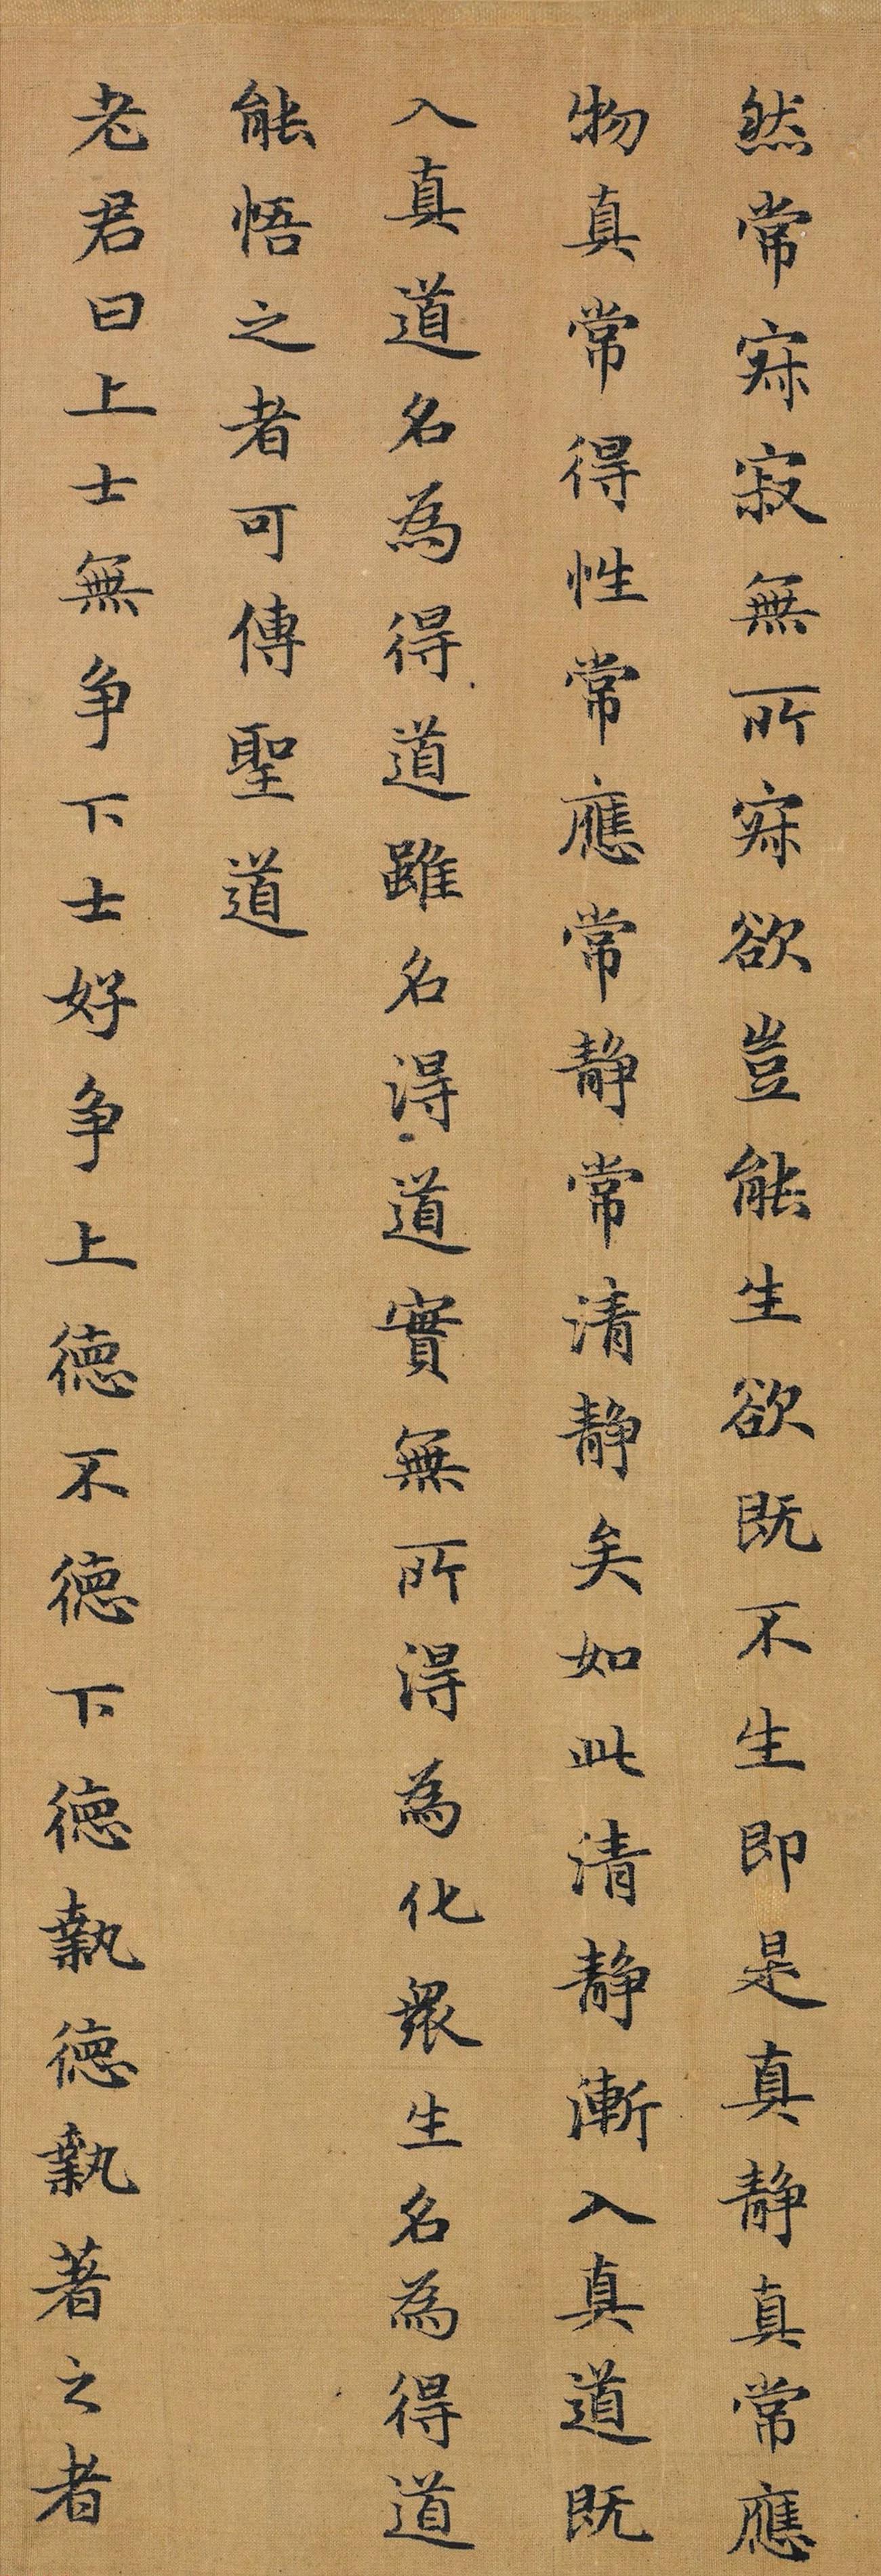 然常寂寂無所寂欲豈能生欲既不生即是真静真常應
物真常得性常應常静常清静矣如此清静漸入真道既
入真道名為得道雖名得道實無所得為化衆生名為得道
能悟之者可傳聖道
老君曰上士無争下士好争上德不德下德執德執著之者